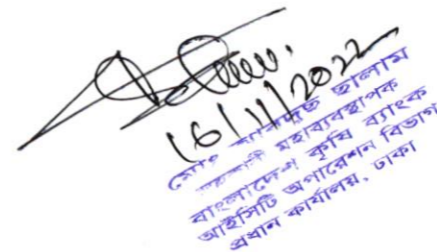 16/11/2022
মোঃ হালাম
মহাব্যবস্থাপক
বাংলাদেশ কৃষি ব্যাংক
আইসিটি অপারেশন বিভাগ
প্রধান কার্যালয়, ঢাকা